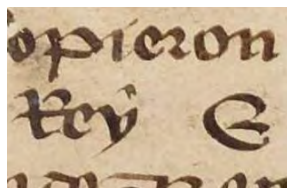 opieron
Rey E